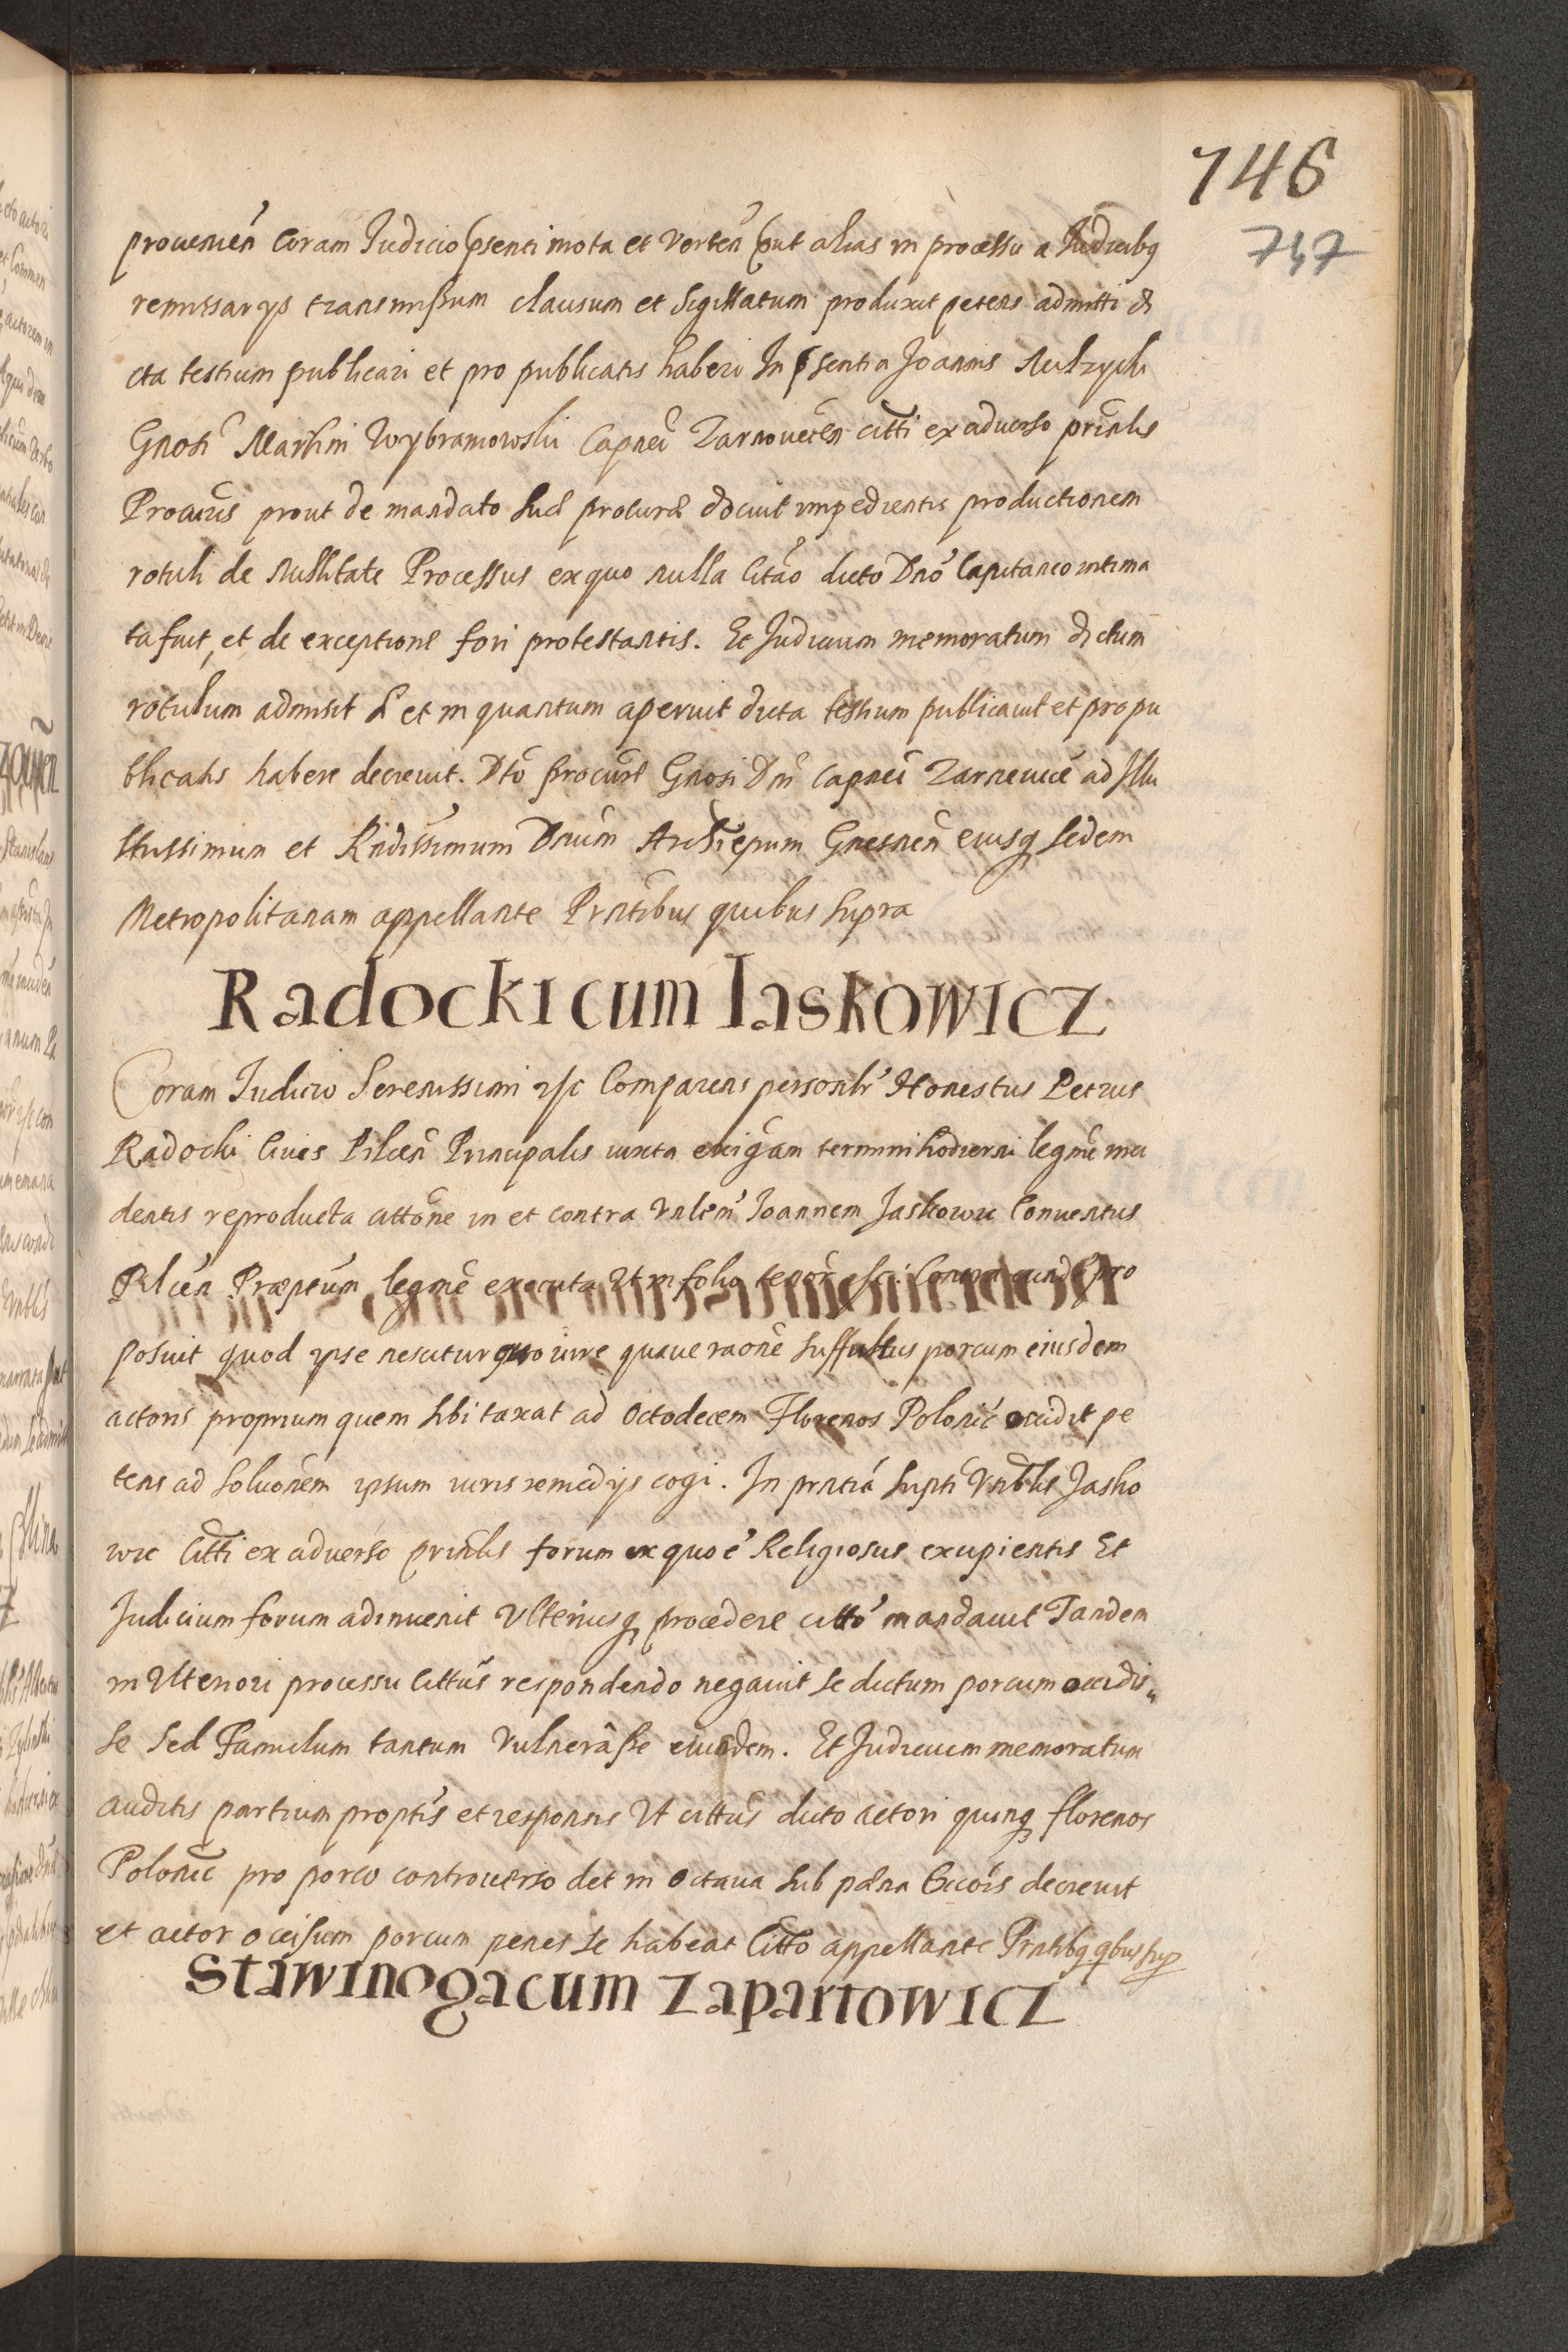 746
747
provenień coram Judicio psenti mota et verteń put alias in processu a Judicibq
remissarijs transmissum clausum et sigillatum produxit petens admitti di
cta testium publicari et pro publicatis haberi In psentia Joannis
Gnosi Martini Wybramowski Capnei Zarnoveceń citti ex adverso prinlis
Procuris prout de mandato suæ procuræ docuit impedientis productionem
rotuli de nullitate Processus ex quo nulla Citão dicto Dnō Capitaneo intima
ta fuit, et de exceptione fori protestantis. Et Judicium memoratum dictum
rotulum admisit et in quantum aperuit dicta testium publicavit et pro pu
blicatis habere decrevit. Dtō procure Gnosi Dni Capnei Zarnevice ad Illu
strissimum et Rndissimum Dnum Archiepum Gnesneń eiusq sedem
Metropolitanam appellante Prntibus quibus supra
Radocki cum Iaskowicz
Coram Judicio Serenissimi Comparens personlr Honestus Petrus
Radocki Civis Pilceń Principalis iuxta exigam termini hodierni legme inci
dentis reproducta cittone in et contra Joannem Jaskowic Conventus
Pilceń Præptum legme executa Ut in folio tenor Contra quem pro
posuit quod ipse nescitur quo iure quave raone suffultus porcum eiusdem
actoris proprium quem sibi taxat ad Octodecem Florenos Polonic occidit pe
tens ad soluonem ipsum iuris remedijs cogi. In prntia supti Vnblis Jasko
wic Citti ex adverso prinlis forum ex quo e Religiosus excipientis Et
Judicium forum adinvenit Ulteriusq procedere citto mandavit Tandem
in Ulteriori processu Cittus respondendo negavit se dictum porcum occidis„
se sed Famulum tantum Vulnerâsse eiusdem. Et Judicium memoratum
auditis partium proptis et responsis Ut cittus dicto actori quinq florenos
Polonic pro porco controverso det in Octava sub pæna Exeois decrevit
et actor occisum porcum penes se habeat Citto appellante Prntibq qbus sup
Stawinoga cum Zapartowicz